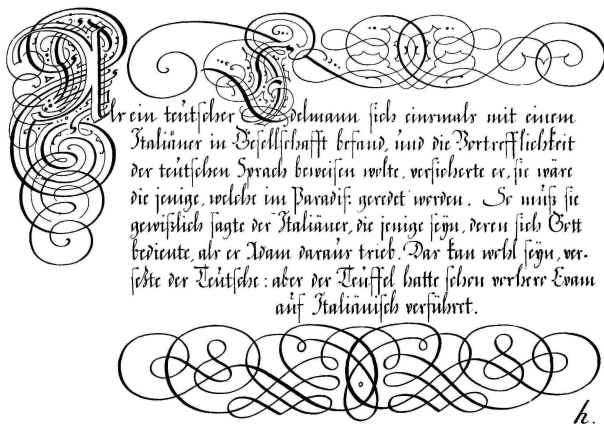 Als ein teütscher Edelmann sich einsmals mit einem
Italiäner in Gesellschafft befand, und die Vortrefflichkeit
der teütschen Sprach beweisen wolte, versicherte er, sie wäre
die jenige, welche im Paradiß: geredet worden. So müß sie
gewißlich sagte der Italiäner, die jenige seyn, deren sich Gott
bediente, als er Adam daraus trieb. Das kan wohl seyn, ver-
setzte der Teütsche: aber der Teüffel hatte schon vorhero Evam
auf Italiänisch verführet.
h.